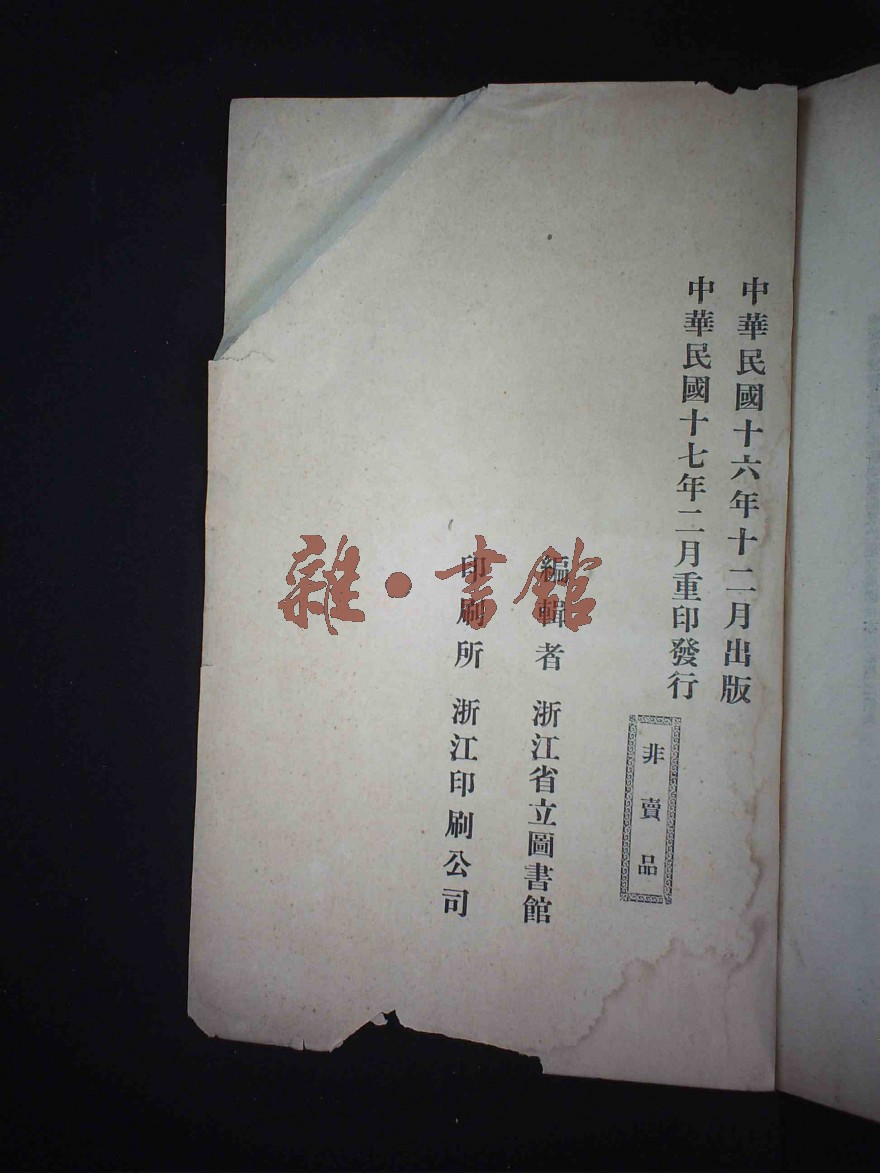 中華民國十六年十二月出版
中華民國十七年二月重印發行
非賣品
編輯者 浙江省立圖書館
印刷所 浙江印刷公司
雜·書館